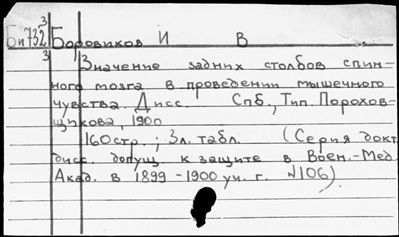 Би732 3/3 Боровиков И В
Значение задних столбов спин-
ного мозга в проведении мышечного
чувства. Дисс. Спб., Тип. Порохов-
щикова, 1900
160стр.; 3л. табл. (Серия докт.
дисс. допущ. к защите в Воен.-Мед.
Акад. в 1899-1900 уч. г. №106)